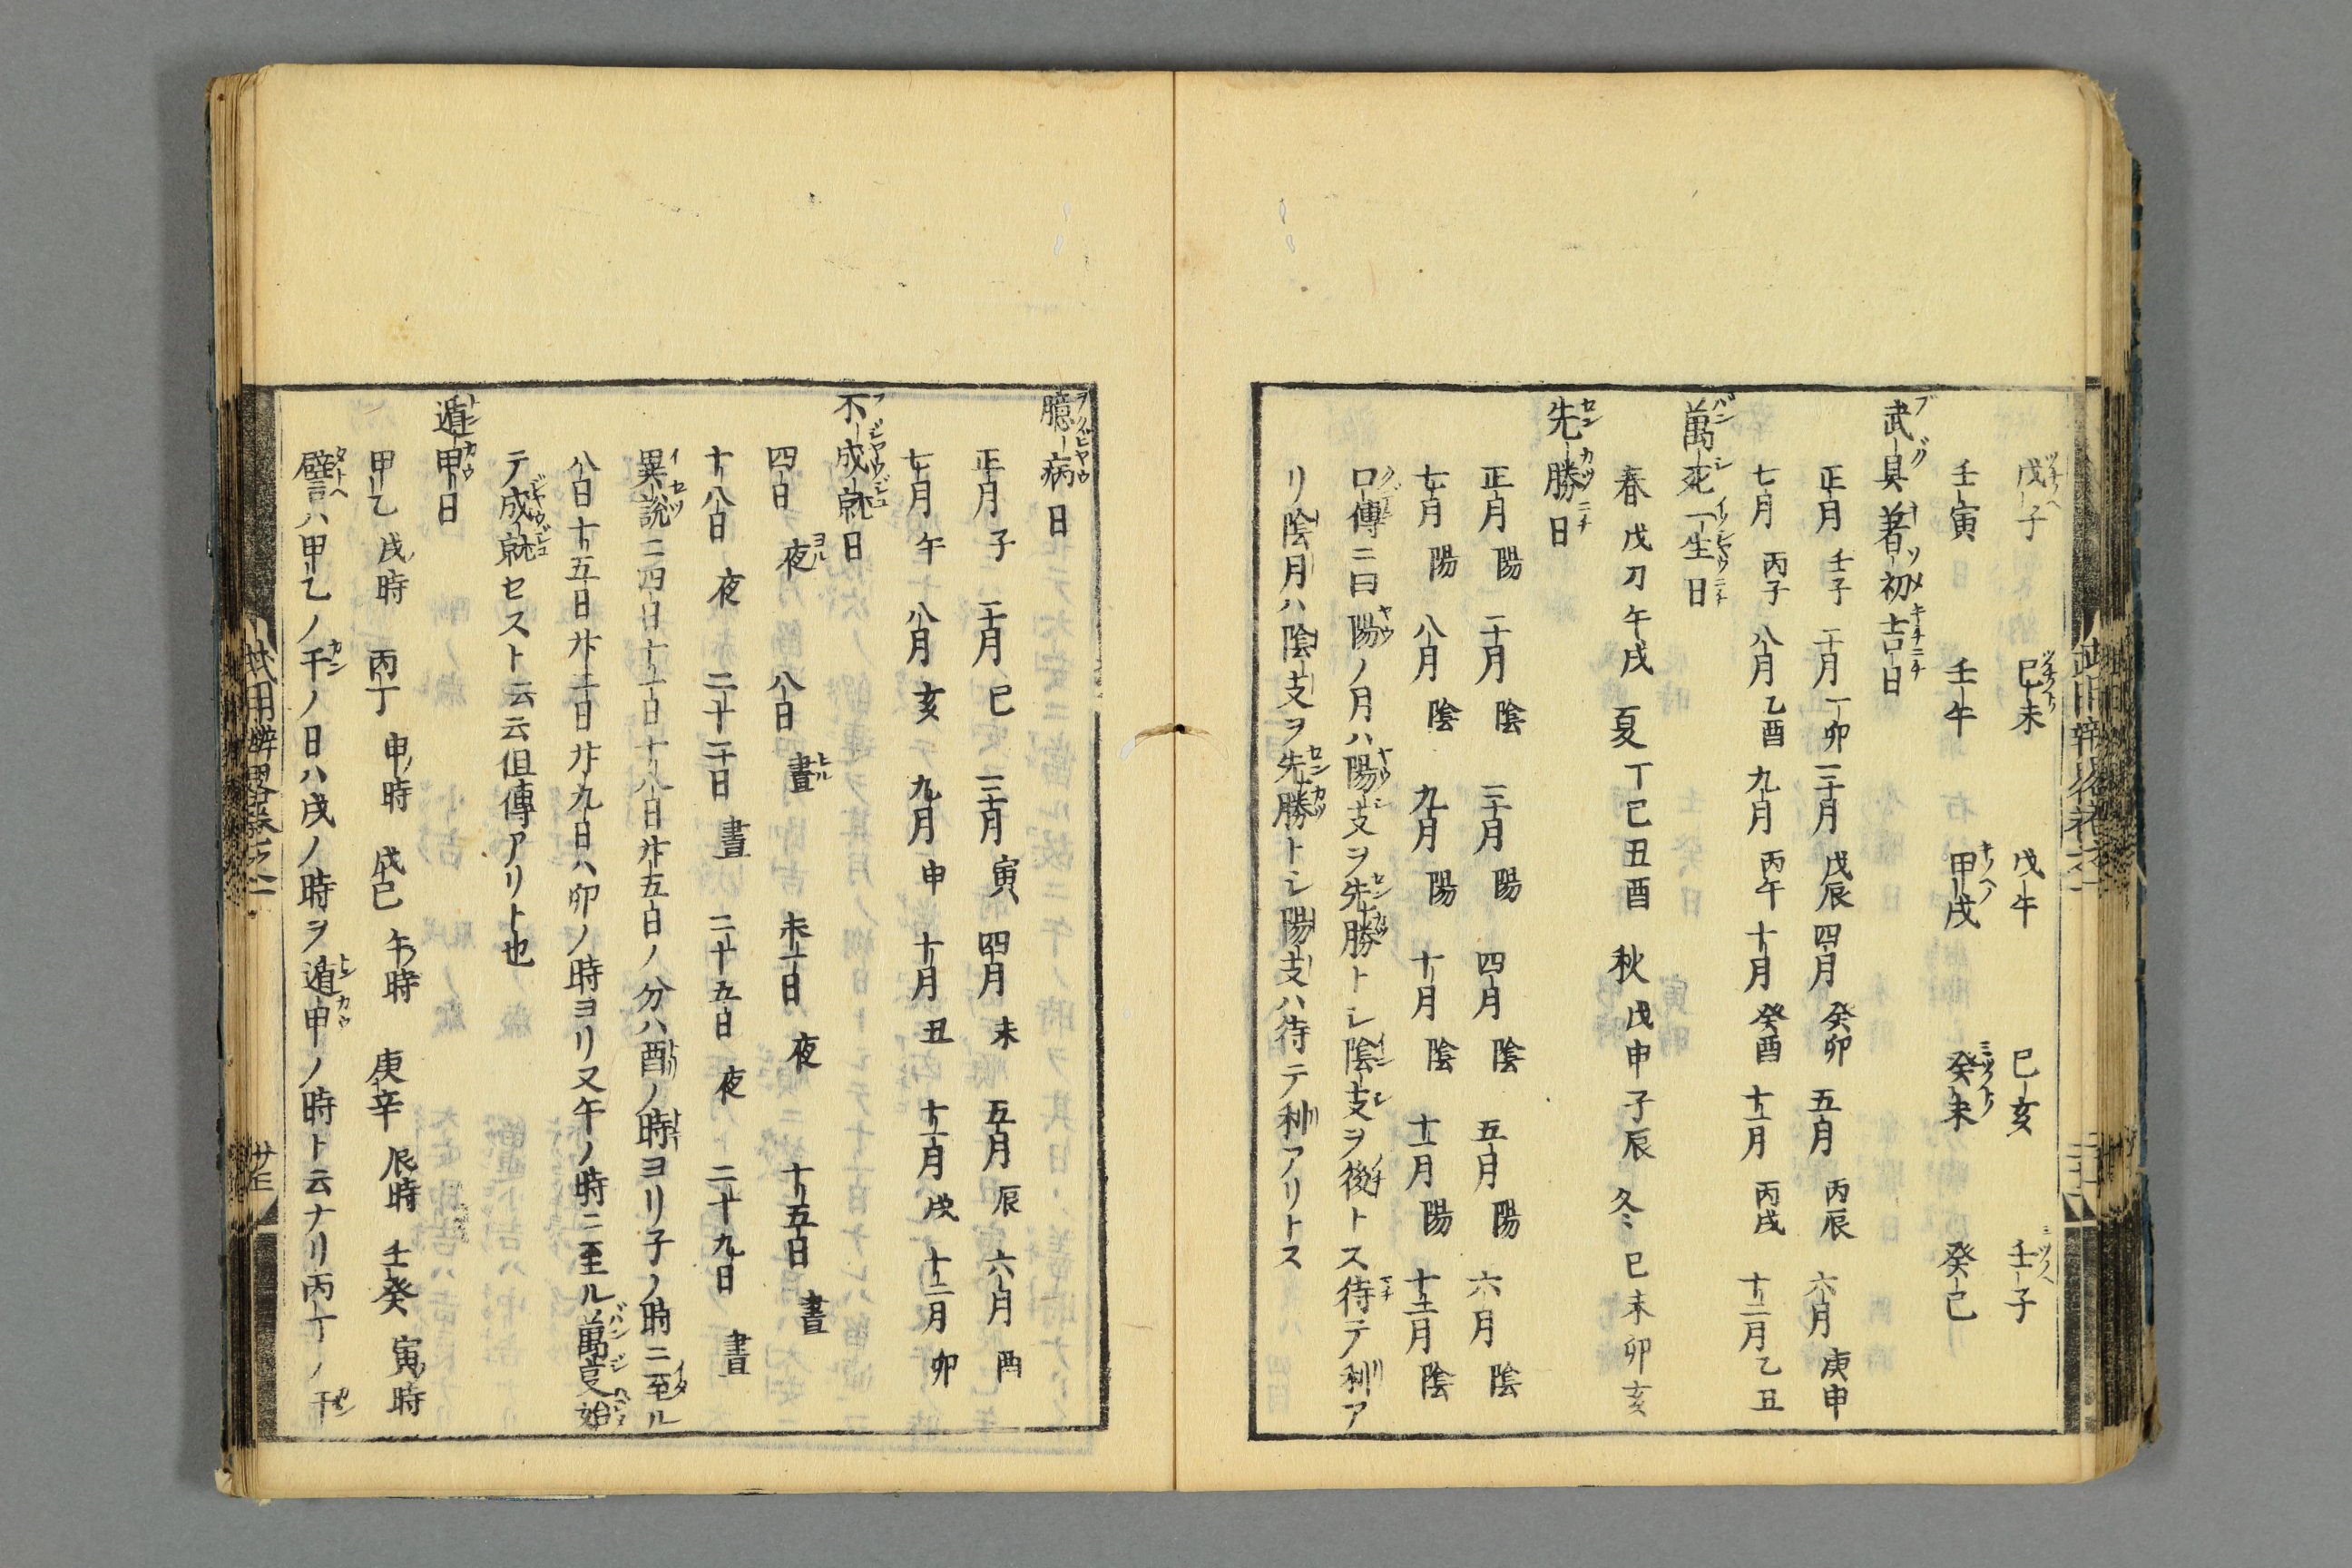 戊子 己未 戊午 己亥 壬子
壬寅 壬午 甲戌 癸未 癸巳
武具著初吉日
正月 壬子 二月 丁卯 三月 戊辰 四月 癸卯 五月 丙辰 六月 庚申
七月 丙子 八月 乙酉 九月 丙午 十月 癸酉 十一月 丙戌 十二月 乙丑
萬死一生日
春 戊刀午戌 夏 丁巳丑酉 秋 戊申子辰 冬 巳未卯亥
先勝日
正月 陽 二月 陰 三月 陽 四月 陰 五月 陽 六月 陰
七月 陽 八月 陰 九月 陽 十月 陰 十一月 陽 十二月 陰
口傳ニ曰陽ノ月ハ陽支ヲ先勝トシ陰支ヲ後トス待テ利ア
リ陰月ハ陰支ヲ先勝トシ陽支ハ待テ利アリトス
臆病日
正月 子 二月 巳 三月 寅 四月 未 五月 辰 六月 酉
七月 午 八月 亥 九月 申 十月 丑 十一月 戌 十二月 卯
不成就日
四日 夜 八日 晝 十一日 夜 十五日 晝
十八日 夜 二十二日 晝 二十五日 夜 二十九日 晝
異説ニ四日十一日十八日廿五日ノ分ハ酉ノ時ヨリ子ノ時ニ至ル
八日十五日廿二日廿九日ハ卯ノ時ヨリ又午ノ時ニ至ル萬亊始
テ成就セスト云云但傳アリト也
遁甲日
甲乙 戌時 丙丁 申時 戊巳 午時 庚辛 辰時 壬癸 寅時
譬ハ甲乙ノ干ノ日ハ戌ノ時ヲ遁申ノ時ト云ナリ丙丁ノ干